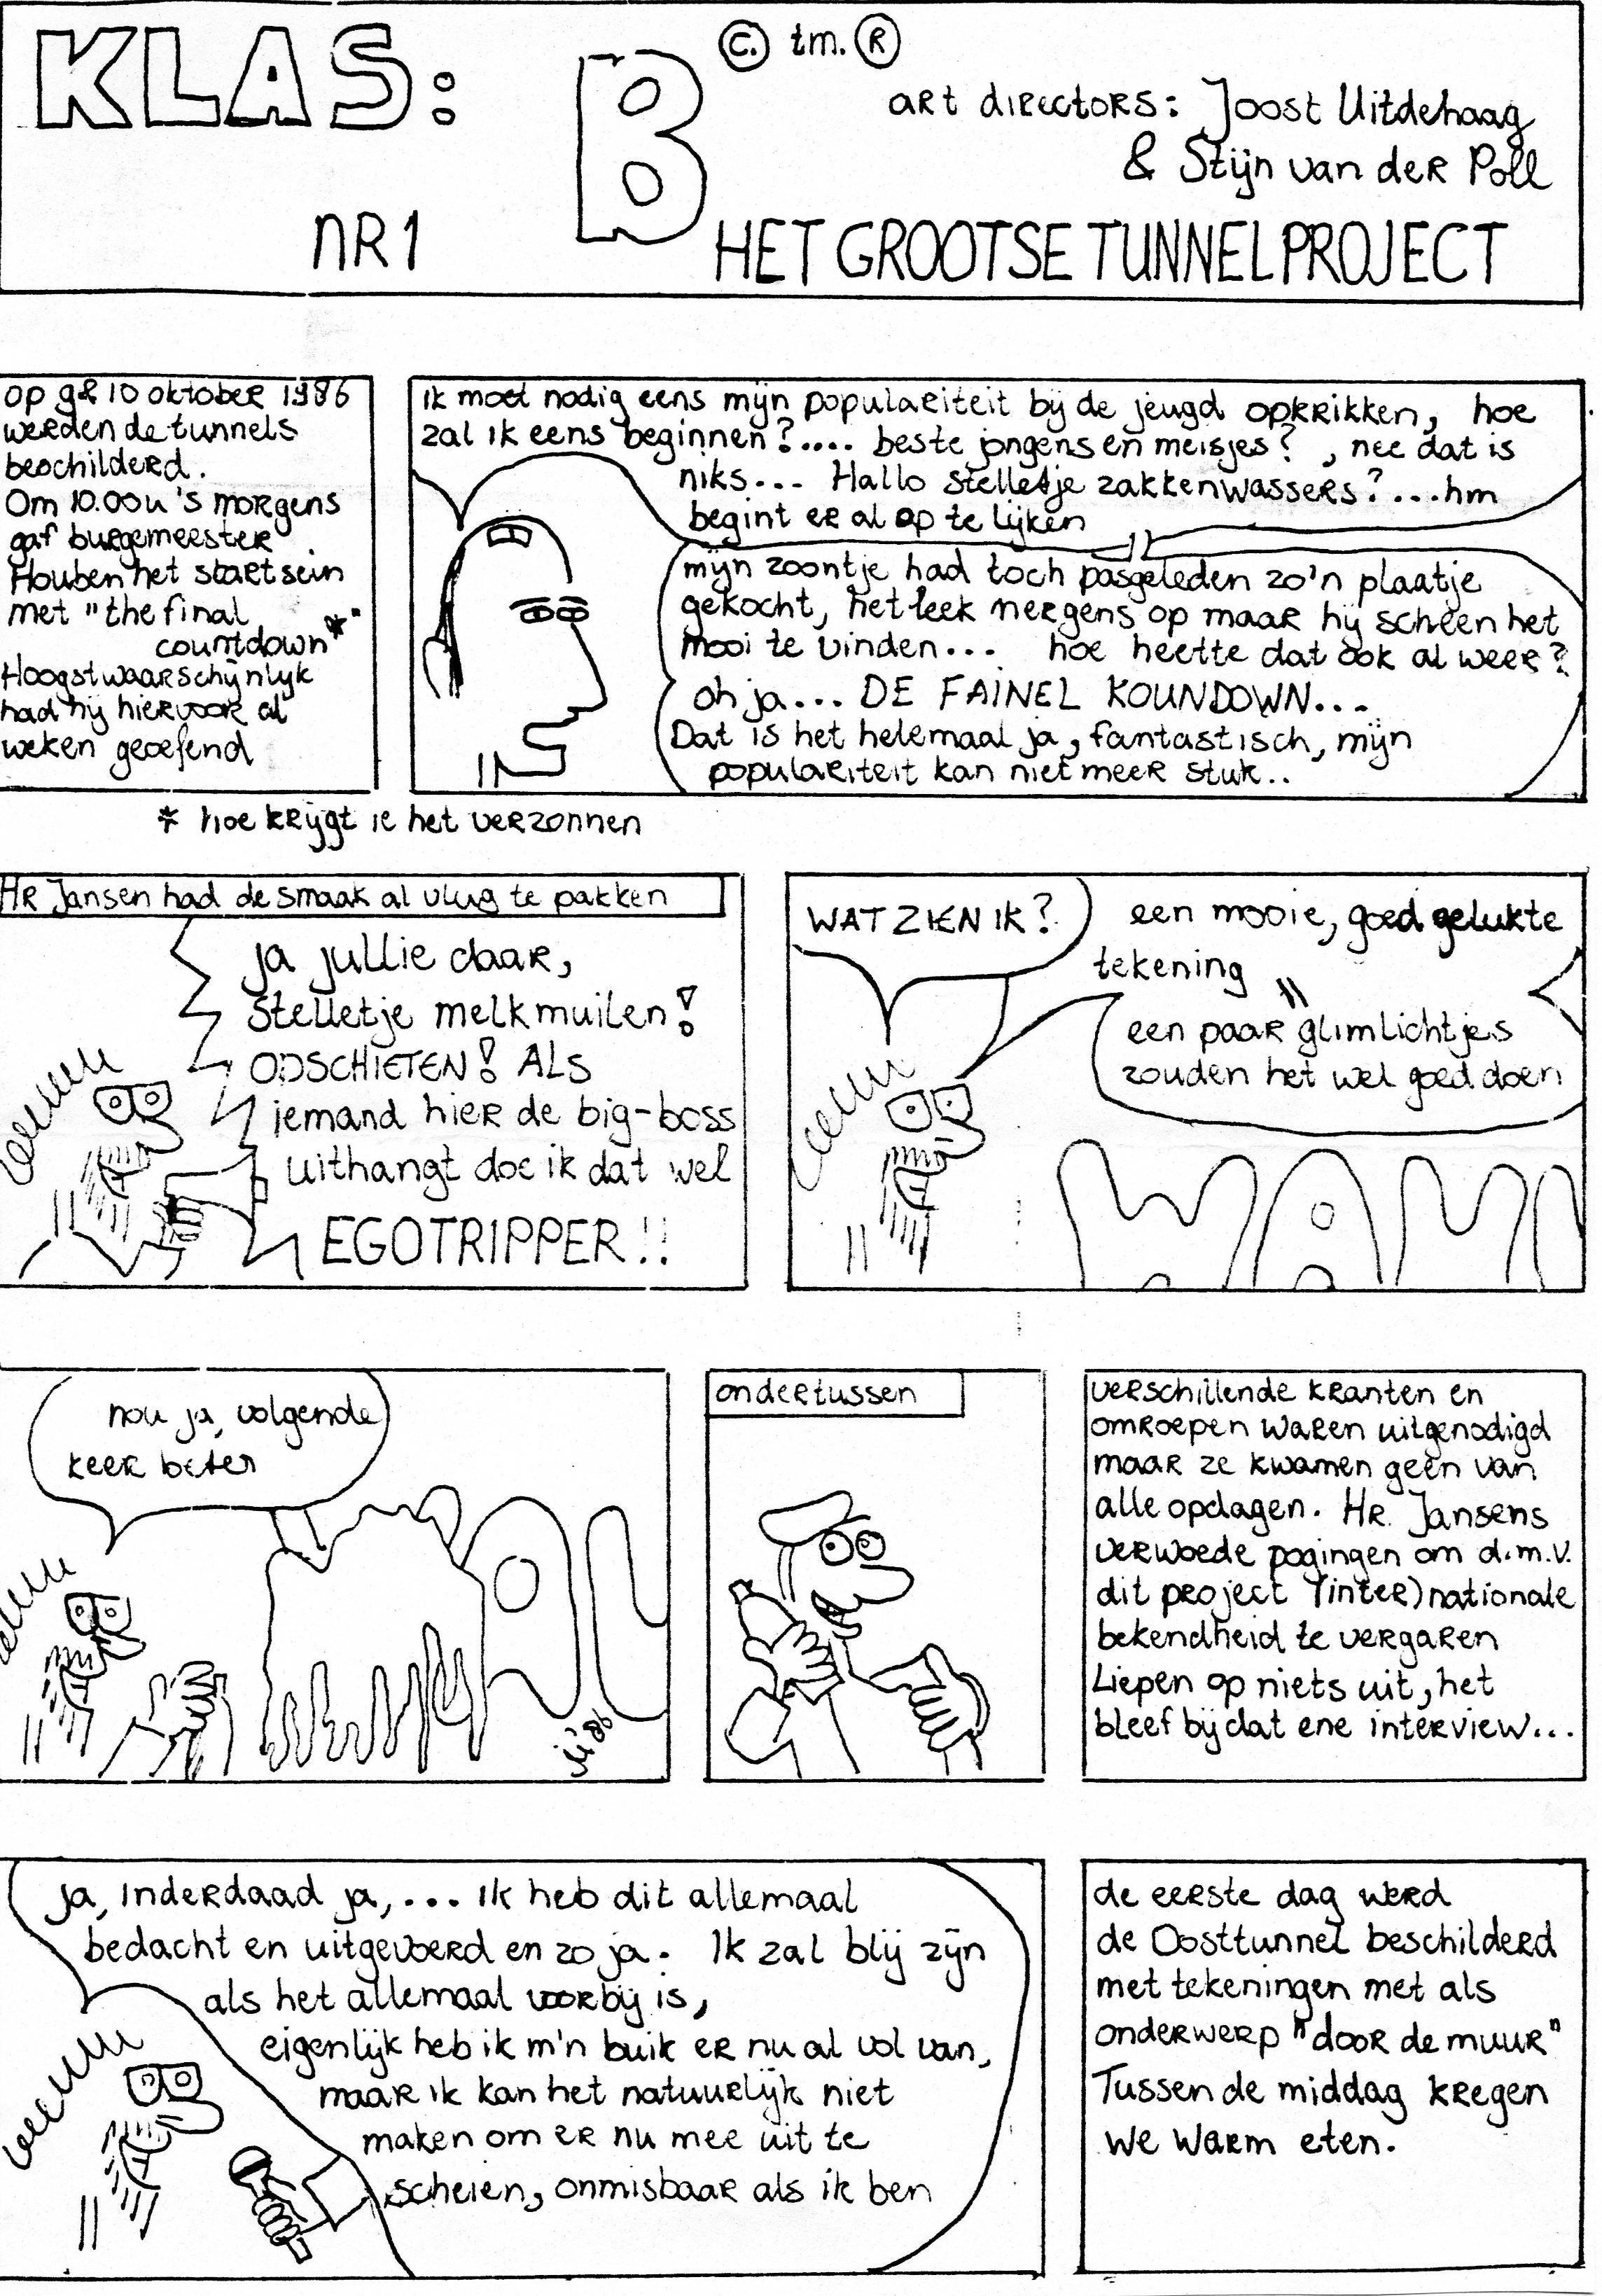 KLAS: B
© tm. ®
art directors: Joost Uitdehaag
& Stijn van der Poll
nR 1
HET GROOTSE TUNNELPROJECT
op 9 & 10 oktober 1986
werden de tunnels
beschilderd.
Om 10.00u 's morgens
gaf burgemeester
Houben het startsein
met "the final
countdown*"
Hoogstwaarschijnlijk
had hij hiervoor al
weken geoefend
ik moet nodig eens mijn populariteit bij de jeugd opkrikken, hoe
zal ik eens beginnen?.... beste jongens en meisjes?, nee dat is
niks... Hallo stelletje zakkenwassers?...hm
begint er al op te lijken
mijn zoontje had toch pasgeleden zo'n plaatje
gekocht, het leek nergens op maar hij scheen het
mooi te vinden... hoe heette dat ook al weer?
oh ja... DE FAINEL KOUNDOWN...
Dat is het helemaal ja, fantastisch, mijn
populariteit kan niet meer stuk..
* hoe krijgt ie het verzonnen
HR Jansen had de smaak al vlug te pakken
ja jullie daar,
stelletje melkmuilen!
OPSCHIETEN! ALS
iemand hier de big-boss
uithangt doe ik dat wel
EGOTRIPPER!!
WAT ZIEN IK?
een mooie, goed gelukte
tekening
een paar glimlichtjes
zouden het wel goed doen
nou ja, volgende
keer beter
ju'86
ondertussen
verschillende kranten en
omroepen waren uitgenodigd
maar ze kwamen geen van
alle opdagen. HR. Jansens
verwoede pogingen om d.m.v.
dit project (inter)nationale
bekendheid te vergaren
Liepen op niets uit, het
bleef bij dat ene interview...
ja, inderdaad ja,... ik heb dit allemaal
bedacht en uitgevoerd en zo ja. Ik zal blij zijn
als het allemaal voorbij is,
eigenlijk heb ik m'n buik er nu al vol van,
maar ik kan het natuurlijk niet
maken om er nu mee uit te
scheien, onmisbaar als ik ben
de eerste dag werd
de Oosttunnel beschilderd
met tekeningen met als
onderwerp "door de muur"
Tussen de middag kregen
we warm eten.